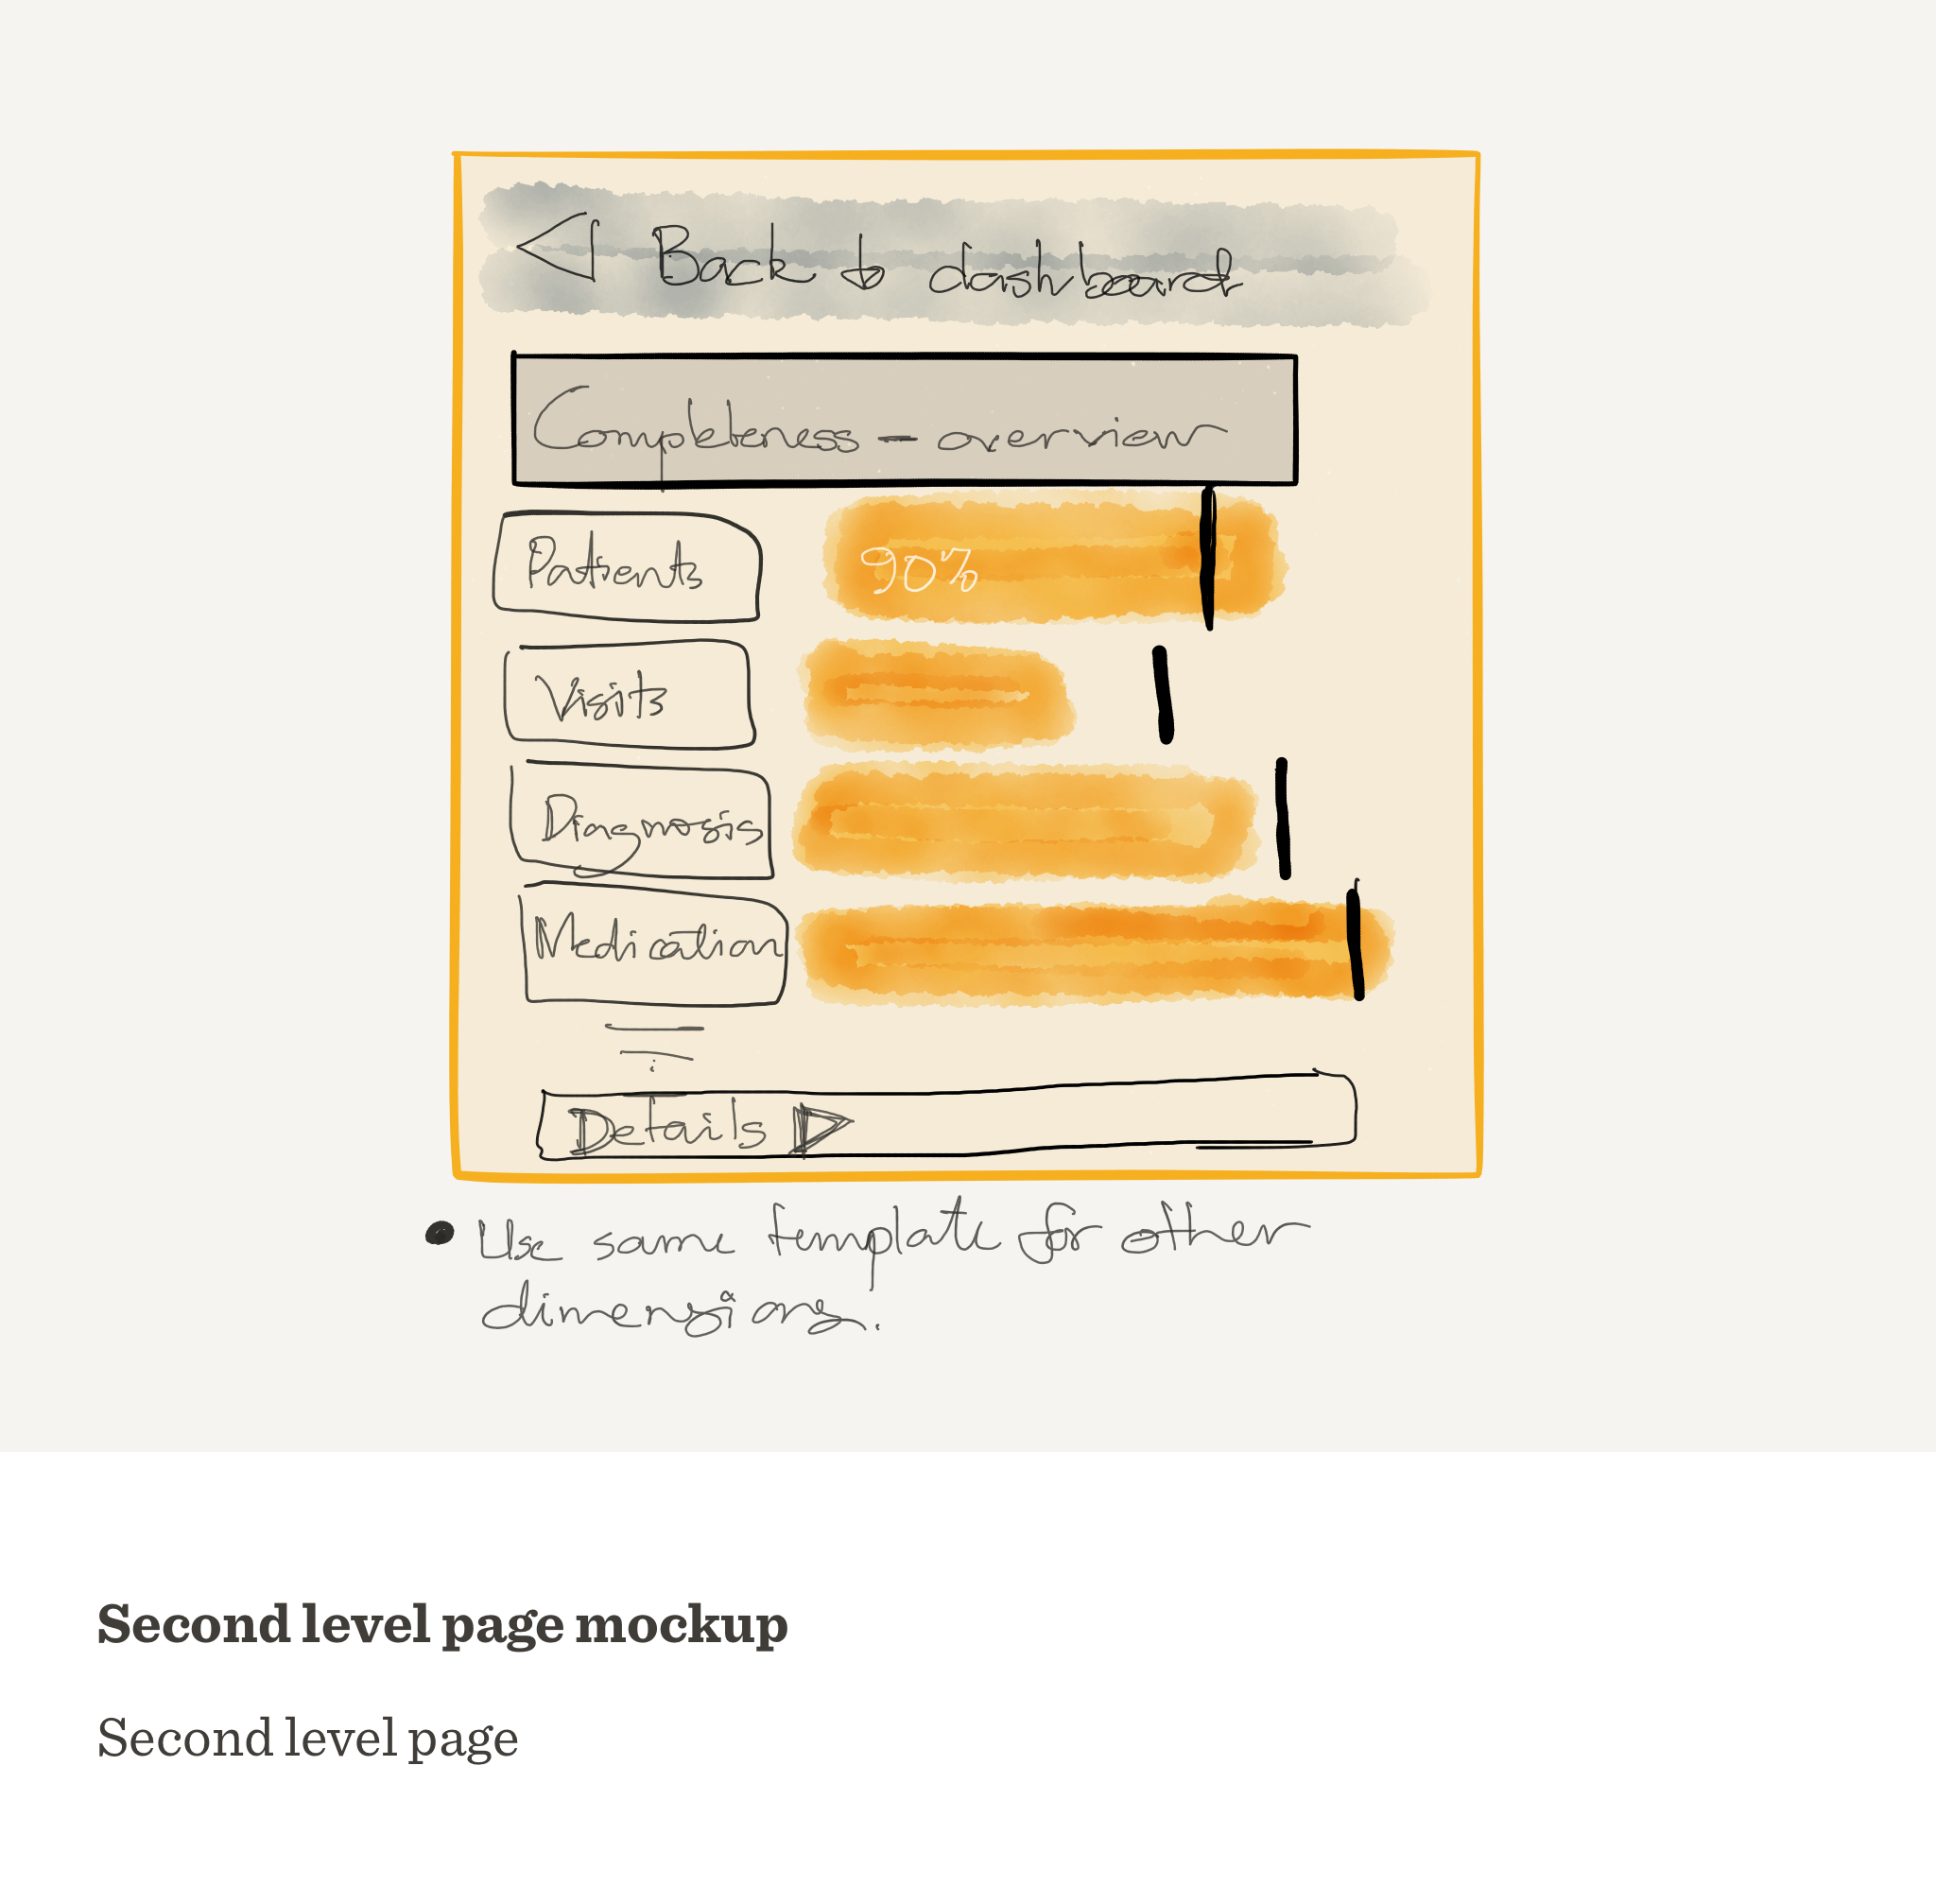 Back to dashboard
Completeness - overview
Patients 90%
Visits
Diagnosis
Medication
Details
Use same template for other
dimensions.
Second level page mockup
Second level page